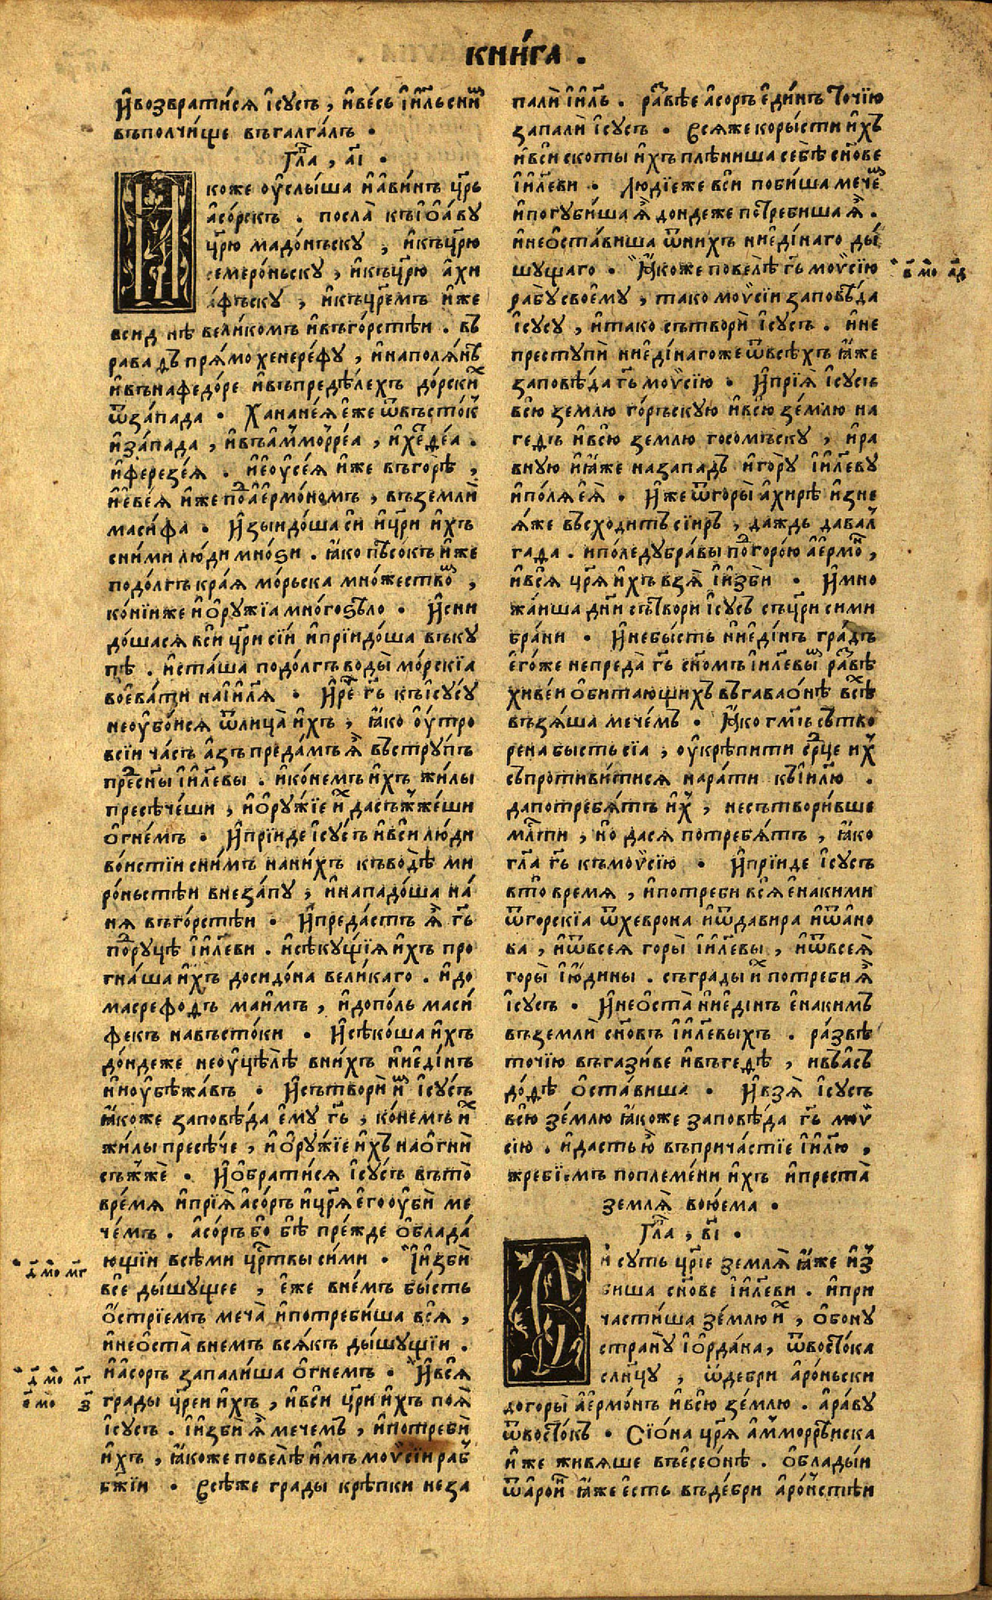 кни́га .
И҆возврати́сѧ і҆сꙋ́съ , и҆ве́сь і҆и҃льскїиⷨ
въполчи́ще въгалга́лъ .
Глⷡ҇а , а҃і .
Ꙗкоже оу҆слы́ша и҆а҆ви́нъ цр҃ь
а҆со́рскъ . посла̀ къі҆ѡа҆́вꙋ
цр҃ю мадо́ньскꙋ , и҆къцр҃ю
семеро́ньскꙋ , и҆къцр҃ю а҆хи
а҆́фьскꙋ , и҆къцр҃емъ и҆́же
въполчи́ще
рава дъ прѧ́мо хенере́фꙋ , и҆наполѧ́нъ
и҆вънафедо́ре и҆въпредѣ́лехъ до́рскиⷯ
ѿза́пада . Ханане́ѧ є҆́же ѿвъсто́къ
и҆за́пада , и҆въа҆мморре́а ,
и҆ферезе́ѧ . и҆і҆еоусе́ѧ и҆́же въгорѣ̀ ,
и҆є҆ве́ѧ и҆́же поⷣа҆ермо́номъ , въземлѝ
маси́фа . И҆зыидо́ша си и҆цр҃и и҆́хъ
сни́ми лю́ди мно́зи . ꙗ҆́ко пѣсо́къ и҆́же
подо́лгъ кра́ѧ мо́рьска мно́жествоⷨ ,
ко́ниїже и҆ѻ҆рꙋ́жїа мно́гоѕѣло . И҆сни
до́шасѧ всѝ цр҃и сїѝ и҆прїидо́ша въкꙋ
пѣ . и҆ста́ша подо́лгъ воды̀ мо́рскїа
воева́ти наі҆и҃лѧ . И҆реⷱ҇ гд҇ь къі҆сꙋ́сꙋ
неоубо́йсѧ ѿлица̀ и҆́хъ , ꙗ҆́ко оу҆́тро
всїи ча́съ а҆́зъ преда́мъ ѧ҆̀ въстрꙋ́пъ
преⷣ сн҃ы і҆и҃левы . и҆ко́немъ и҆́хъ жи́лы
пресѣче́ши , и҆ѻ҆рꙋ́жїе иⷯ дасъжже́ши
ѻ҆гне́мъ . И҆прїи́де і҆сꙋ́съ и҆всѝ лю́ди
во́истїи сни́мъ нани́хъ къводѣ̀ ми
ро́ньстѣи внеза́пꙋ , и҆нападо́ша на́
нѧ въго́рстѣи . И҆преда́стъ ѧ҆̀ гд҇ь
поⷣрꙋцѣ̀ і҆и҃леви . и҆сѣкꙋ́щїѧ и҆́хъ про
гна́ша и҆́хъ досидо́на вели́каго . и҆до
масрефо дъ маи́мъ , и҆допо́ль маси́
фекъ навъсто́ки . И҆сѣко́ша и҆́хъ
до́ндеже неоу҆цѣлѣ̀ вни́хъ ниеди́нъ
и҆ноубѣжа́въ . И҆сътворѝ иⷨ і҆сꙋ́съ
ꙗ҆́коже заповѣ́да є҆мꙋ̀ гд҇ь , конемъ иⷯ
жи́лы пресѣ́че , и҆ѻ҆рꙋ́жїе и҆́хъ наѻ҆гнѝ
съжже . И҆ѻ҆брати́сѧ і҆сꙋ́съ въто̀
вре́мѧ и҆прїѧ̀ а҆со́ръ и҆цр҃ѧ є҆го̀ оу҆бѝ ме
че́мъ . а҆со́ръ бо бѣ̀ пре́жде ѻ҆блада́
ющїи всѣ́ми црⷭ҇твы си́ми . И҆и҆збѝ
всѐ ды́шꙋщее , є҆́же вне́мъ бы́сть
ѻ҆́стрїемъ меча̀ и҆потреби́ша всѧ̀ ,
и҆неѻ҆ста̀ внемъ всѧ́къ ды́шꙋщїи .
и҆а҆соръ запали́ша ѻ҆гнемъ . И҆всѧ̀
гра́ды цр҃еи и҆́хъ , и҆всѝ цр҃и и҆́хъ поѧ̀
і҆сꙋ́съ . и҆и҆збѝ ѧ҆̀ мече́мъ , и҆потребѝ
и҆́хъ , ꙗ҆́коже повелѣ̀ и҆́мъ моѵсі́и раб
бж҃їи . Всѣ́же гра́ды крѣ́пки неза
пали і҆и҃ль . ра́звѣе а҆соръ є҆ди́нъ То́чїю
запалѝ і҆сꙋ́съ . Всѧ́же коры́сти и҆́хъ
и҆всѝ скоты̀ и҆́хъ плѣни́ша себѣ̀ сн҃ове
і҆и҃леви . Лю́дїеже всѝ поби́ша мечеⷨ
и҆погꙋби́ша ѧ҆̀ до́ндеже потреби́ша ѧ҆̀ .
и҆неѻ҆ста́виша ѿни́хъ ниеди́наго ды́
шꙋщаго . Ꙗ҆́коже повелѣ̀ гд҇ь моѵсі́ю
рабꙋ̀ своемꙋ̀ , та́ко моѵсі́и заповѣ́да
і҆сꙋ́сꙋ , и҆та́ко сътворѝ і҆сꙋ́съ . и҆не
престꙋпѝ ниеди́нагоже ѿвсѣ́хъ ꙗ҆́же
заповѣ́да гд҇ь моѵсі́ю . И҆прїѧ̀ і҆сꙋ́съ
всю̀ зе́млю го́рьскꙋю и҆всю̀ зе́млю на
ге́дъ и҆всю̀ зе́млю госо́мьскꙋ , и҆ра
внꙋю и҆ꙗ҆́же наза́падъ и҆го́рꙋ і҆и҃левꙋ
и҆полѧ̀ еѧ̀ . И҆́же ѿгоры̀ а҆хи́рѣ и҆зне
ѧ҆́же въсхо́дитъ сїи́ръ , да́ждь дава́л
га́да . и҆по́ле дꙋбра́вы поⷣгоро́ю а҆ермоⷩ ,
и҆всѧ̀ цр҃ѧ и҆́хъ взѧ̀ и҆и҆збѝ . И҆мно
жаиша дн҃и сътворѝ і҆сꙋ́съ съцр҃и си́ми
бра́ни . И҆небы́сть ниеди́нъ гра́дъ
є҆го́же непреда̀ гд҇ь сн҃омъ і҆и҃левыⷨ ра́звѣ
хиве́и ѻ҆бита́ющихъ въгаваѻ҆́нѣ всѣⷯ
възѧ́ша мечемъ . Ꙗ҆́ко гмⷭ҇ъ сътво
рена бы́сть сїа̀ , оу҆крѣпи́ти срⷣце иⷯ
съпроти́витисѧ нара́ти къі҆и҃лю .
дапотребѧ́тъ иⷯ , несътвори́вше
млⷭ҇ти , но дасѧ потребѧ́тъ , ꙗ҆́ко
гл҃а гд҇ь къмоѵсі́ю . И҆прїи́де і҆сꙋ́съ
вто̀ вре́мѧ , и҆потребѝ всѧ̀ є҆наки́ми
ѿго́рскїа ѿхевро́на и҆ѿдави́ра и҆ѿано
ва , и҆ѿвсеѧ̀ горы̀ і҆и҃левы , и҆ѿвсеѧ̀
горы̀ і҆ю́дины . съгра́ды иⷯ потребѝ ѧ҆̀
і҆сꙋ́съ . И҆неѻ҆ста̀ ниеди́нъ є҆наки́мъ
въземлѝ сн҃овъ і҆и҃левыхъ . ра́звѣ
то́чїю въгази́ве и҆въге́дѣ , и҆въа́съ
до́дѣ ѻ҆ста́виша . И҆взѧ̀ і҆сꙋ́съ
всю̀ зе́млю ꙗ҆́коже заповѣ́да гд҇ь моѵ
сі́ю . и҆дастъ ю҆̀ въприча́стїе і҆и҃лю ,
жре́бїемъ поплеме́ни и҆́хъ и҆преста̀
землѧ̀ вою́ема .
Глⷡ҇а , в҃і .
И҆ сꙋ́ть цр҃їе землѧ̀ ꙗ҆́же и҆з
биша сн҃ове і҆и҃леви . и҆при
части́ша зе́млю иⷯ , ѻ҆бонꙋ
странꙋ̀ і҆ѻрда́на , ѿвосто́ка
слн҃цꙋ , ѿде́бри а҆ро́ньски
догоры̀ а҆ермо́нъ и҆всю̀ зе́млю . а҆ра́вꙋ
ѿвосто́къ . Сїо́на цр҃ѧ а҆мморре́иска
и҆́же живѧ́ше въесео́нѣ . ѻ҆блада́и
ѿароⷩ҇ ꙗ҆́же є҆сть въде́бри а҆ро́истѣи
в҃ мо а҃д
д҃ мо мг҃
д҃ мо лг҃
є҃ мо з҃